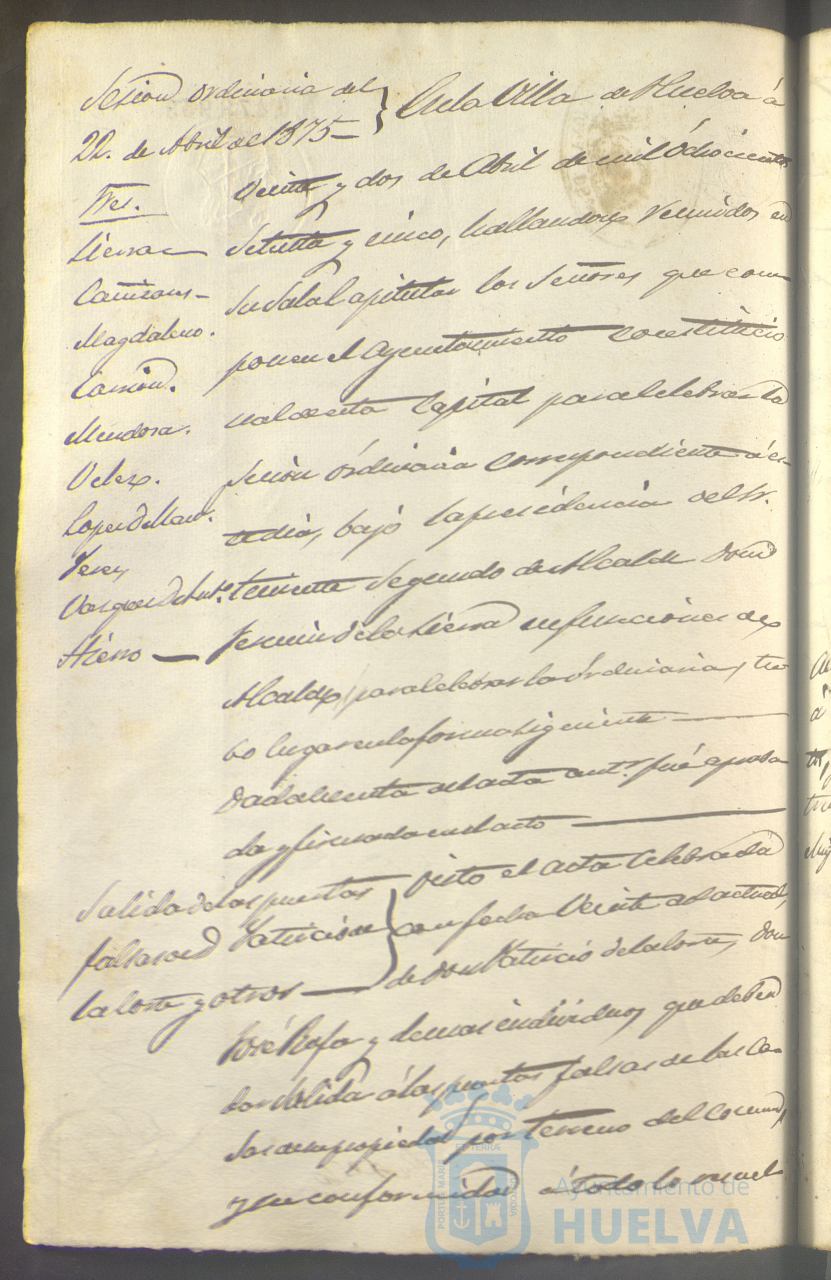 Sesion ordinaria del
22. de Abril de 1875—
En la Villa de Huelva á
veinte y dos de Abril de mil ochocientos
setenta y cinco, hallandose reunidos en
su Sala Capitular los Señores que com-
ponen el Ayuntamiento Constitucio
nal de esta Capital para celebrar la
sesion órdinaria correspondiente á es-
te dia, bajo la presidencia del Sr.
teniente Segundo de Alcalde Don
Fermin de la Sierra en funciones de
Alcalde, para celebrar la órdinaria, tu-
bo lugar en la forma siguiente —
Sres.
Sierra—
Cañizares—
Magdaleno.
Carrion.
Mendoza.
Velez.
Lopez de
Perez
Vazquez de
Hierro—
Dada cuenta del acta antr. fué aproba
da y firmada en el acto —
Salida de las puertas
falsas de D Patricio de
la Corte y otros —
Visto el acta celebrada
con fecha veinte del actual,
de Don Patricio de la Corte, Don
José Rafa y demas individuos que deben
dar salida á las puertas falsas de las ca-
sas de su propiedad por terreno del Comun,
y en conformidad á todo lo resuel
PORTUS MARIS
ET TERRAE
CUSTODIA
Ayuntamiento de
HUELVA